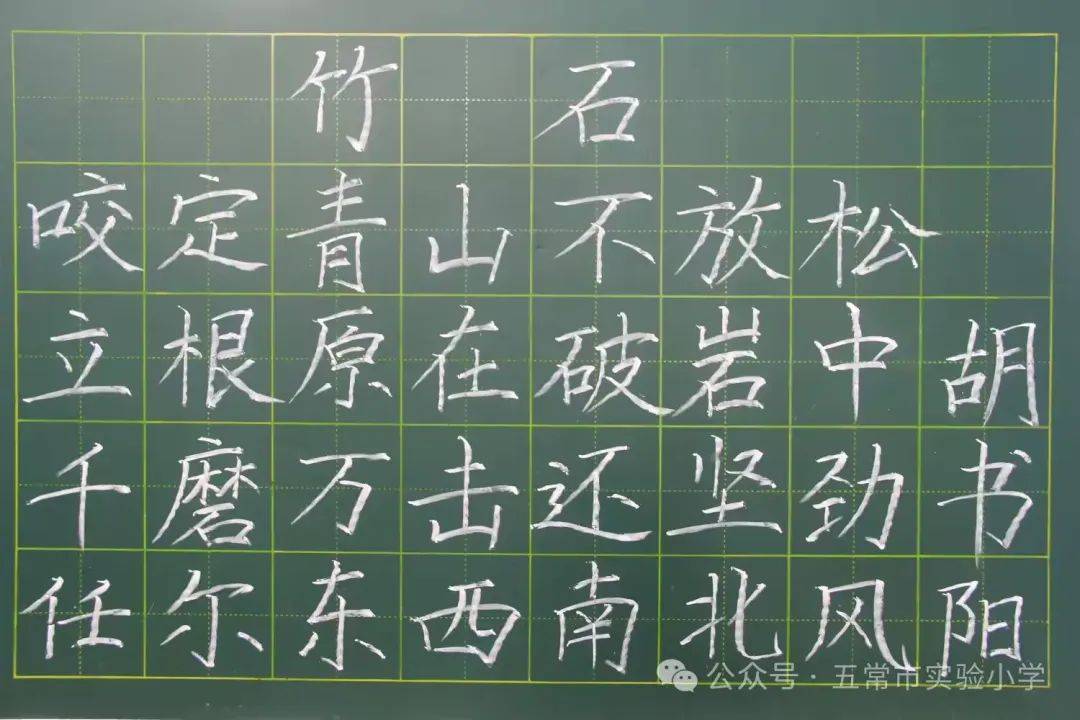 竹石
咬定青山不放松
立根原在破岩中胡
千磨万击还坚劲书
任尔东西南北风阳
公众号·五常市实验小学